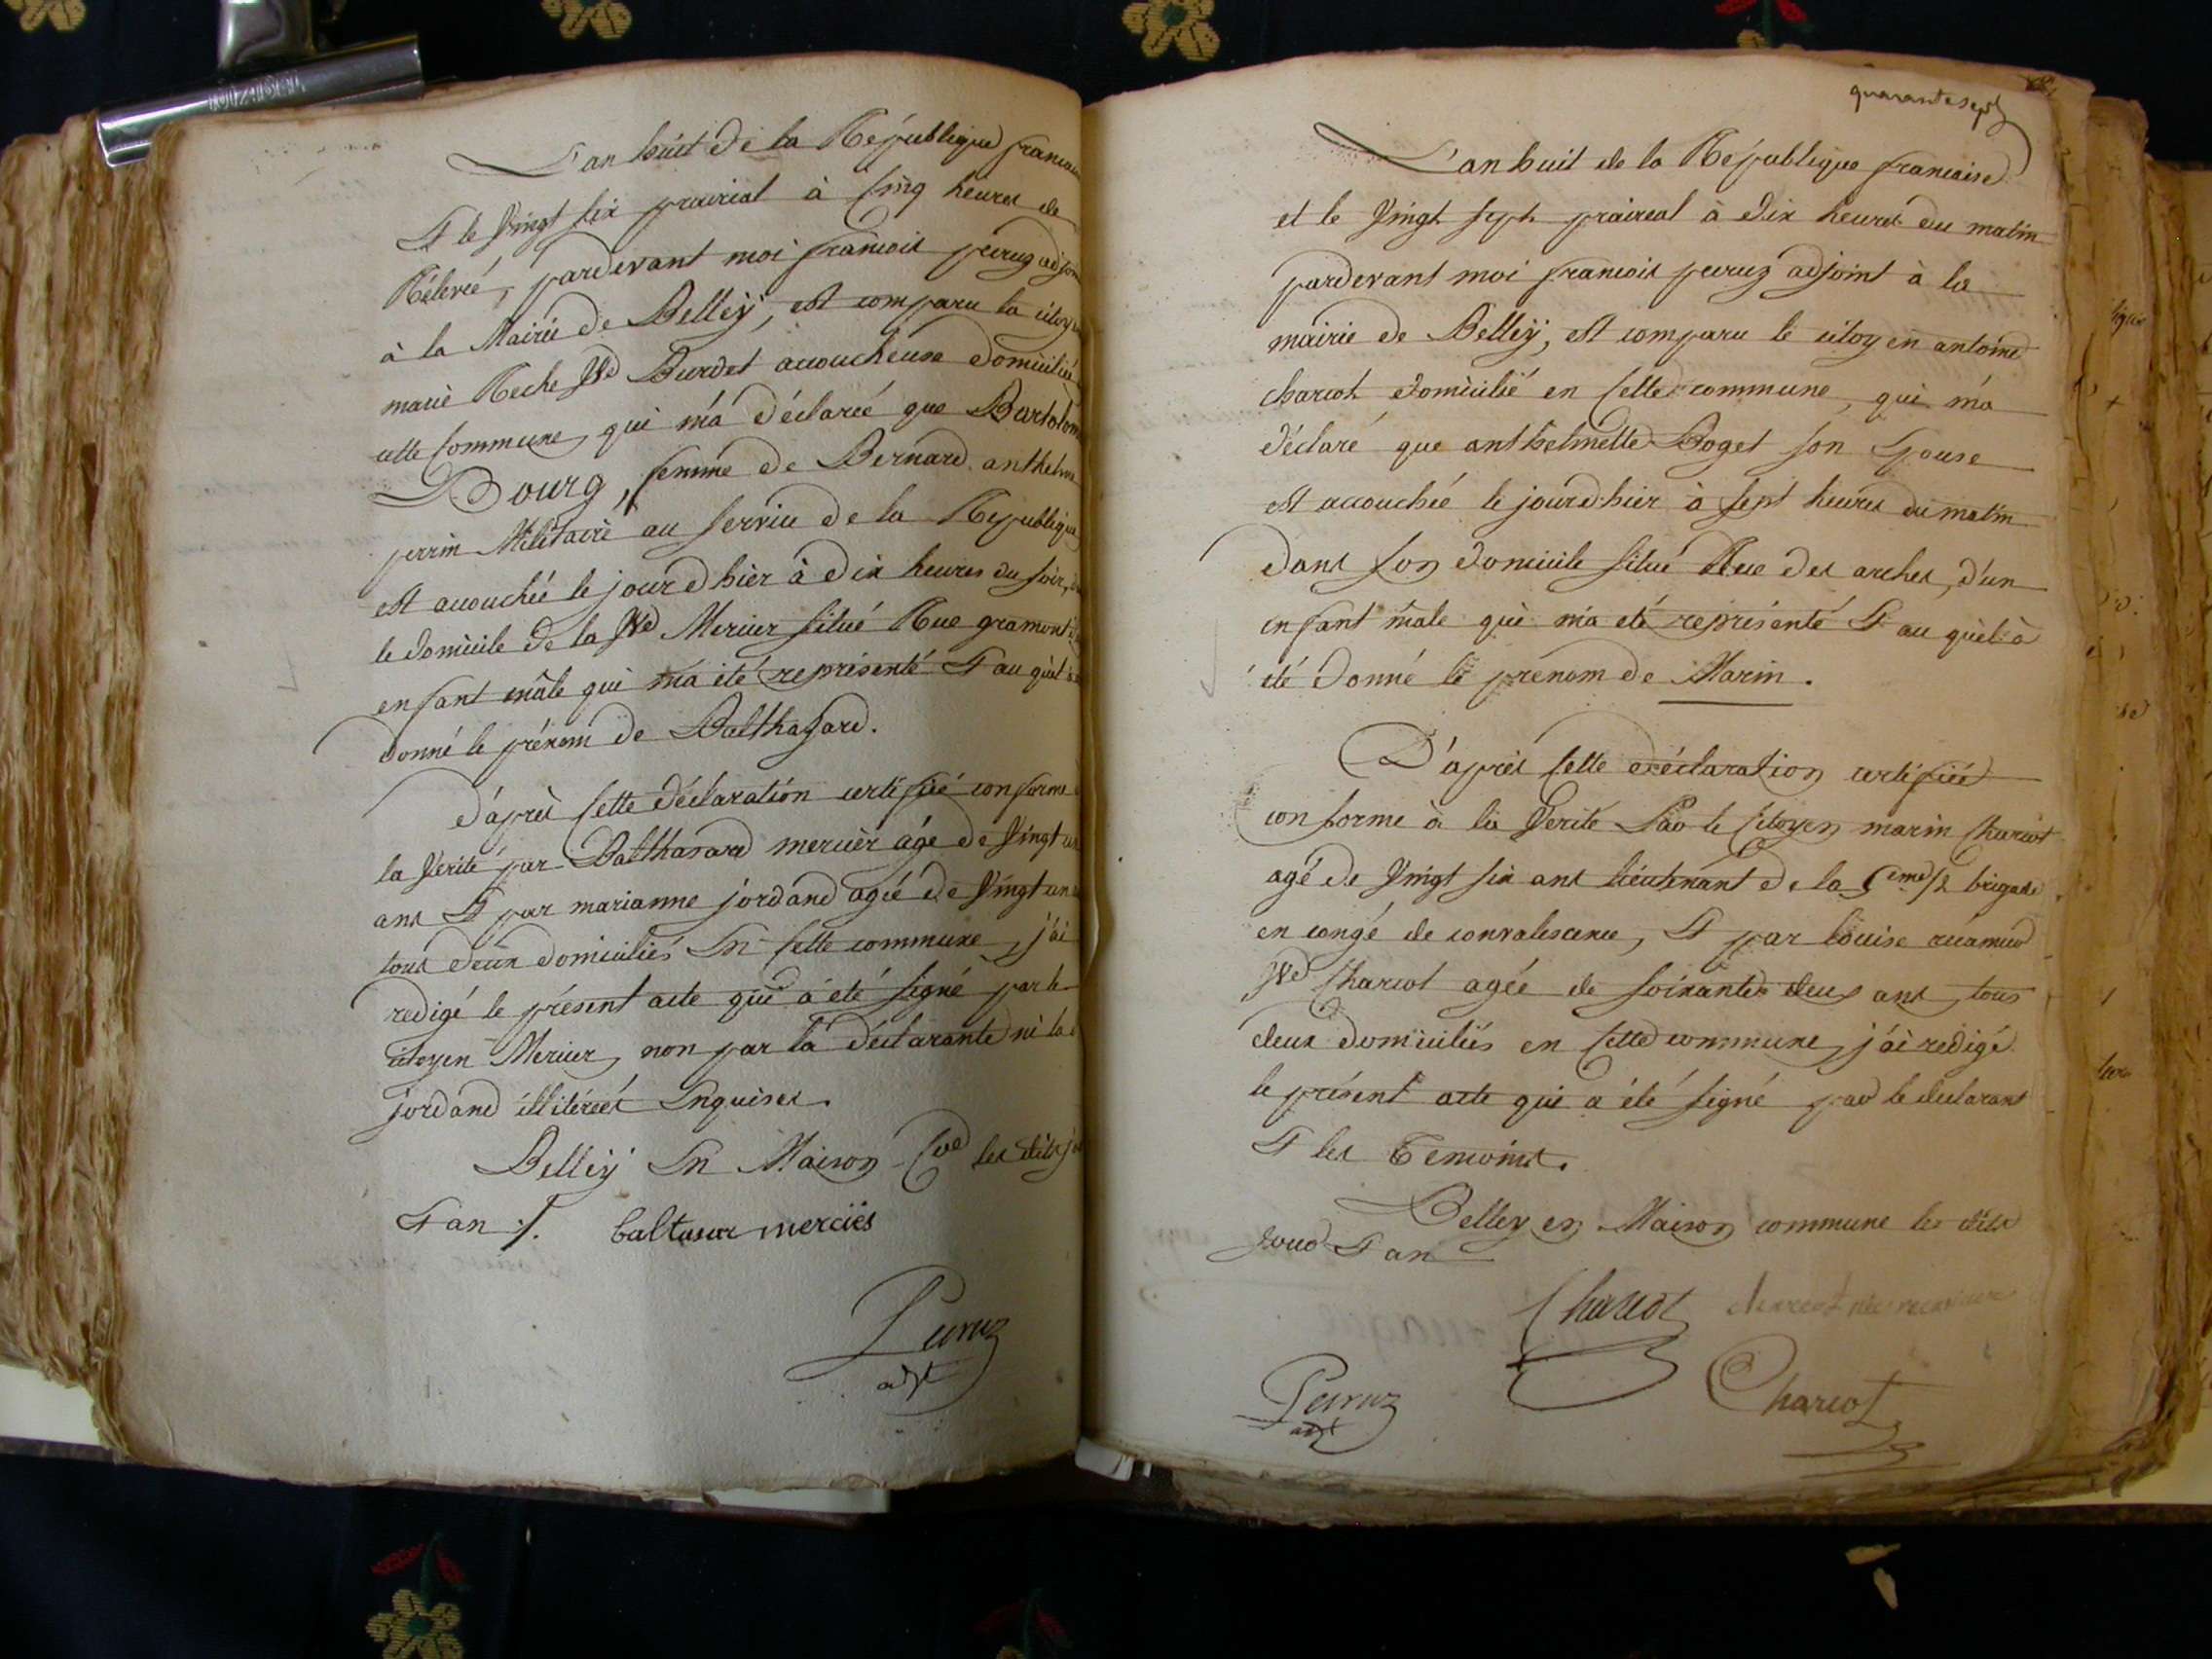 L'an huit de la République francai
Et le Vingt six prairial à Cinq heures de
Rélevée, pardevant moi francois peruz adjoin
à la Mairie de Belleÿ, est comparu la citoy
marie Roche Ve Burdet accoucheuse domiciliée
cette Commune, qui m'a déclarée que Bartolom
Bourg, femme de Bernard anthelme
perrin Militaire au service de la Republique
est accouchée le jour d'hier à dix heures du soir,
le domicile de la Ve Mercier situé Rue gramont
enfant mâle qui m'a été représenté Et au quel
donné le prénom de Balthasard.
d'après Cette déclaration certifié conforme
la Verité par Balthasard mercier âgé de Vingt
ans Et par marianne jordand agée de Vingt un
tous deux domiciliés En Cette commune, j'ai
redigé le présent acte qui a été signé par le
citoyen Mercier, non par la déclarante ni la
jordand illiterées Enquises.
Belleÿ En Maison Cne les dits j
Et an ./. baltasar merciés
Peruz
adjt
quarante sept
L'an huit de la République francaise
et le Vingt sept praireal à dix heures du matin
pardevant moi francois peruz adjoint à la
mairie de Belleÿ, est comparu le citoyen antoine
charcot domicilié en Cette commune, qui m'a
déclaré que anthelmette Boget son Epouse
est accouchée le jourd'hier à sept heures du matin
dans son domicile situé Rue des arches, d'un
enfant mâle qui m'a eté représenté Et au quel à
été donné le prenom de Marin.
D'après Cette déclaration certifiée
conforme à la Verité Par le Citoyen marin Charcot
agé de Vingt six ans lieutenant de la 5eme 1/2 brigade
en congé de convalescence, Et par louise récamier
Ve Charcot agée de soixante deux ans, tous
deux domiciliés en Cette commune, j'ai redigé
le présent acte qui a été signé par le declarant
Et les Temoins.
Belley en Maison commune les dits
Jour Et an
Charcot charcot née recamier
Peruz
adjt
Charcot